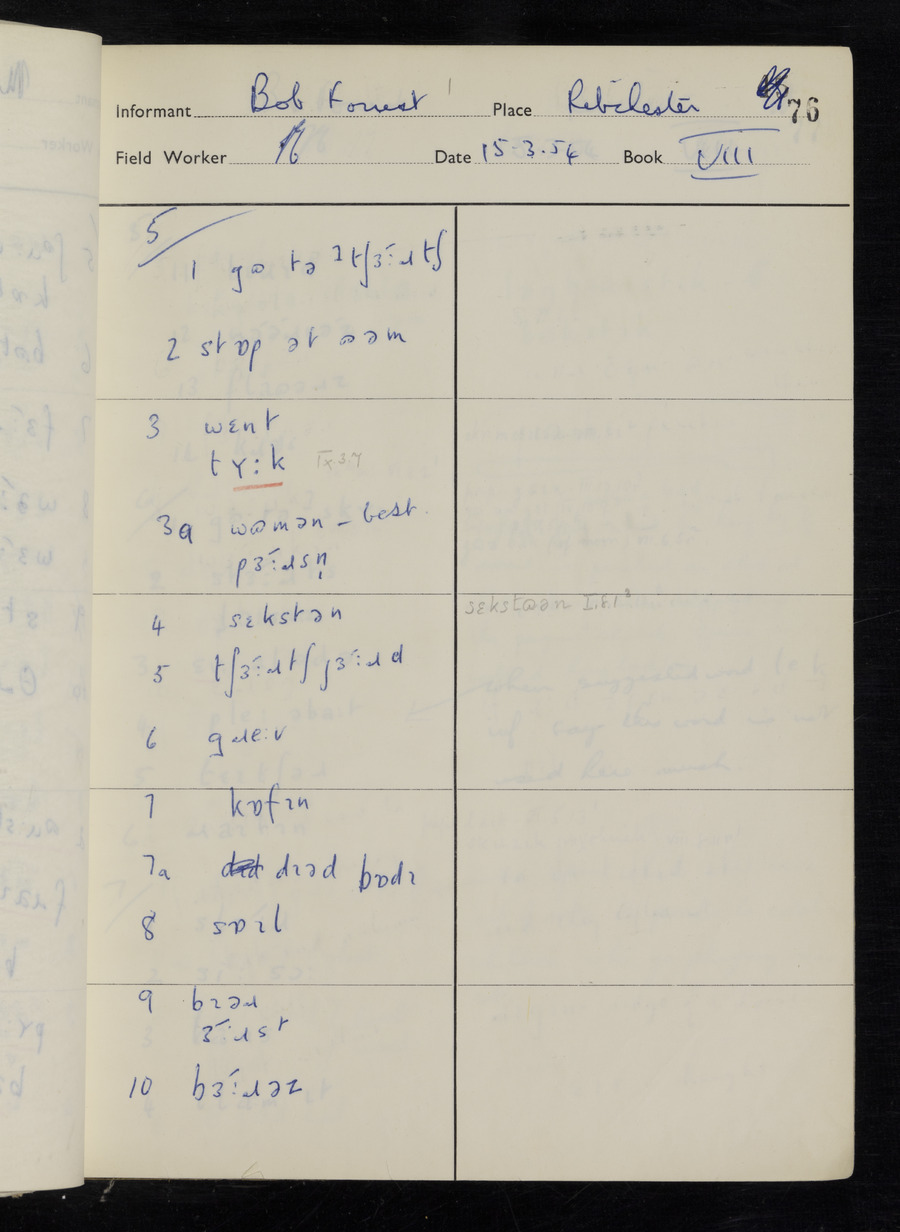 Informant Bob Forrest Place Ribchester 76
Field Worker Date 15-3-54 Book VIII
5
1 gɷ tə ʔtʃɜ˞:ɹtʃ
2 stɒp ət ɷəm
3 wɛnt
tʏ:k IX.3.7
3a wɷmən – best
pɜ˞:ɹsn̩
4 sɛkstən
sɛkstɷən I.8.1
5 tʃɜ˞:ɹtʃ jɜ˞:ɹd
6 gɹe:v
7 kɒfɪn
7a dɪəd bɒdɪ
8 sɒɪl
9 bɪəɹ
ɜ˞:ɹst
10 bɜ˞:ɹɪəz